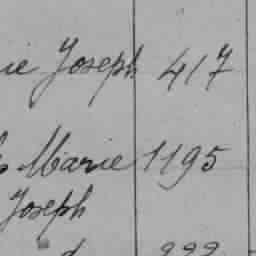 ie Joseph 417
Marie 1195
Joseph